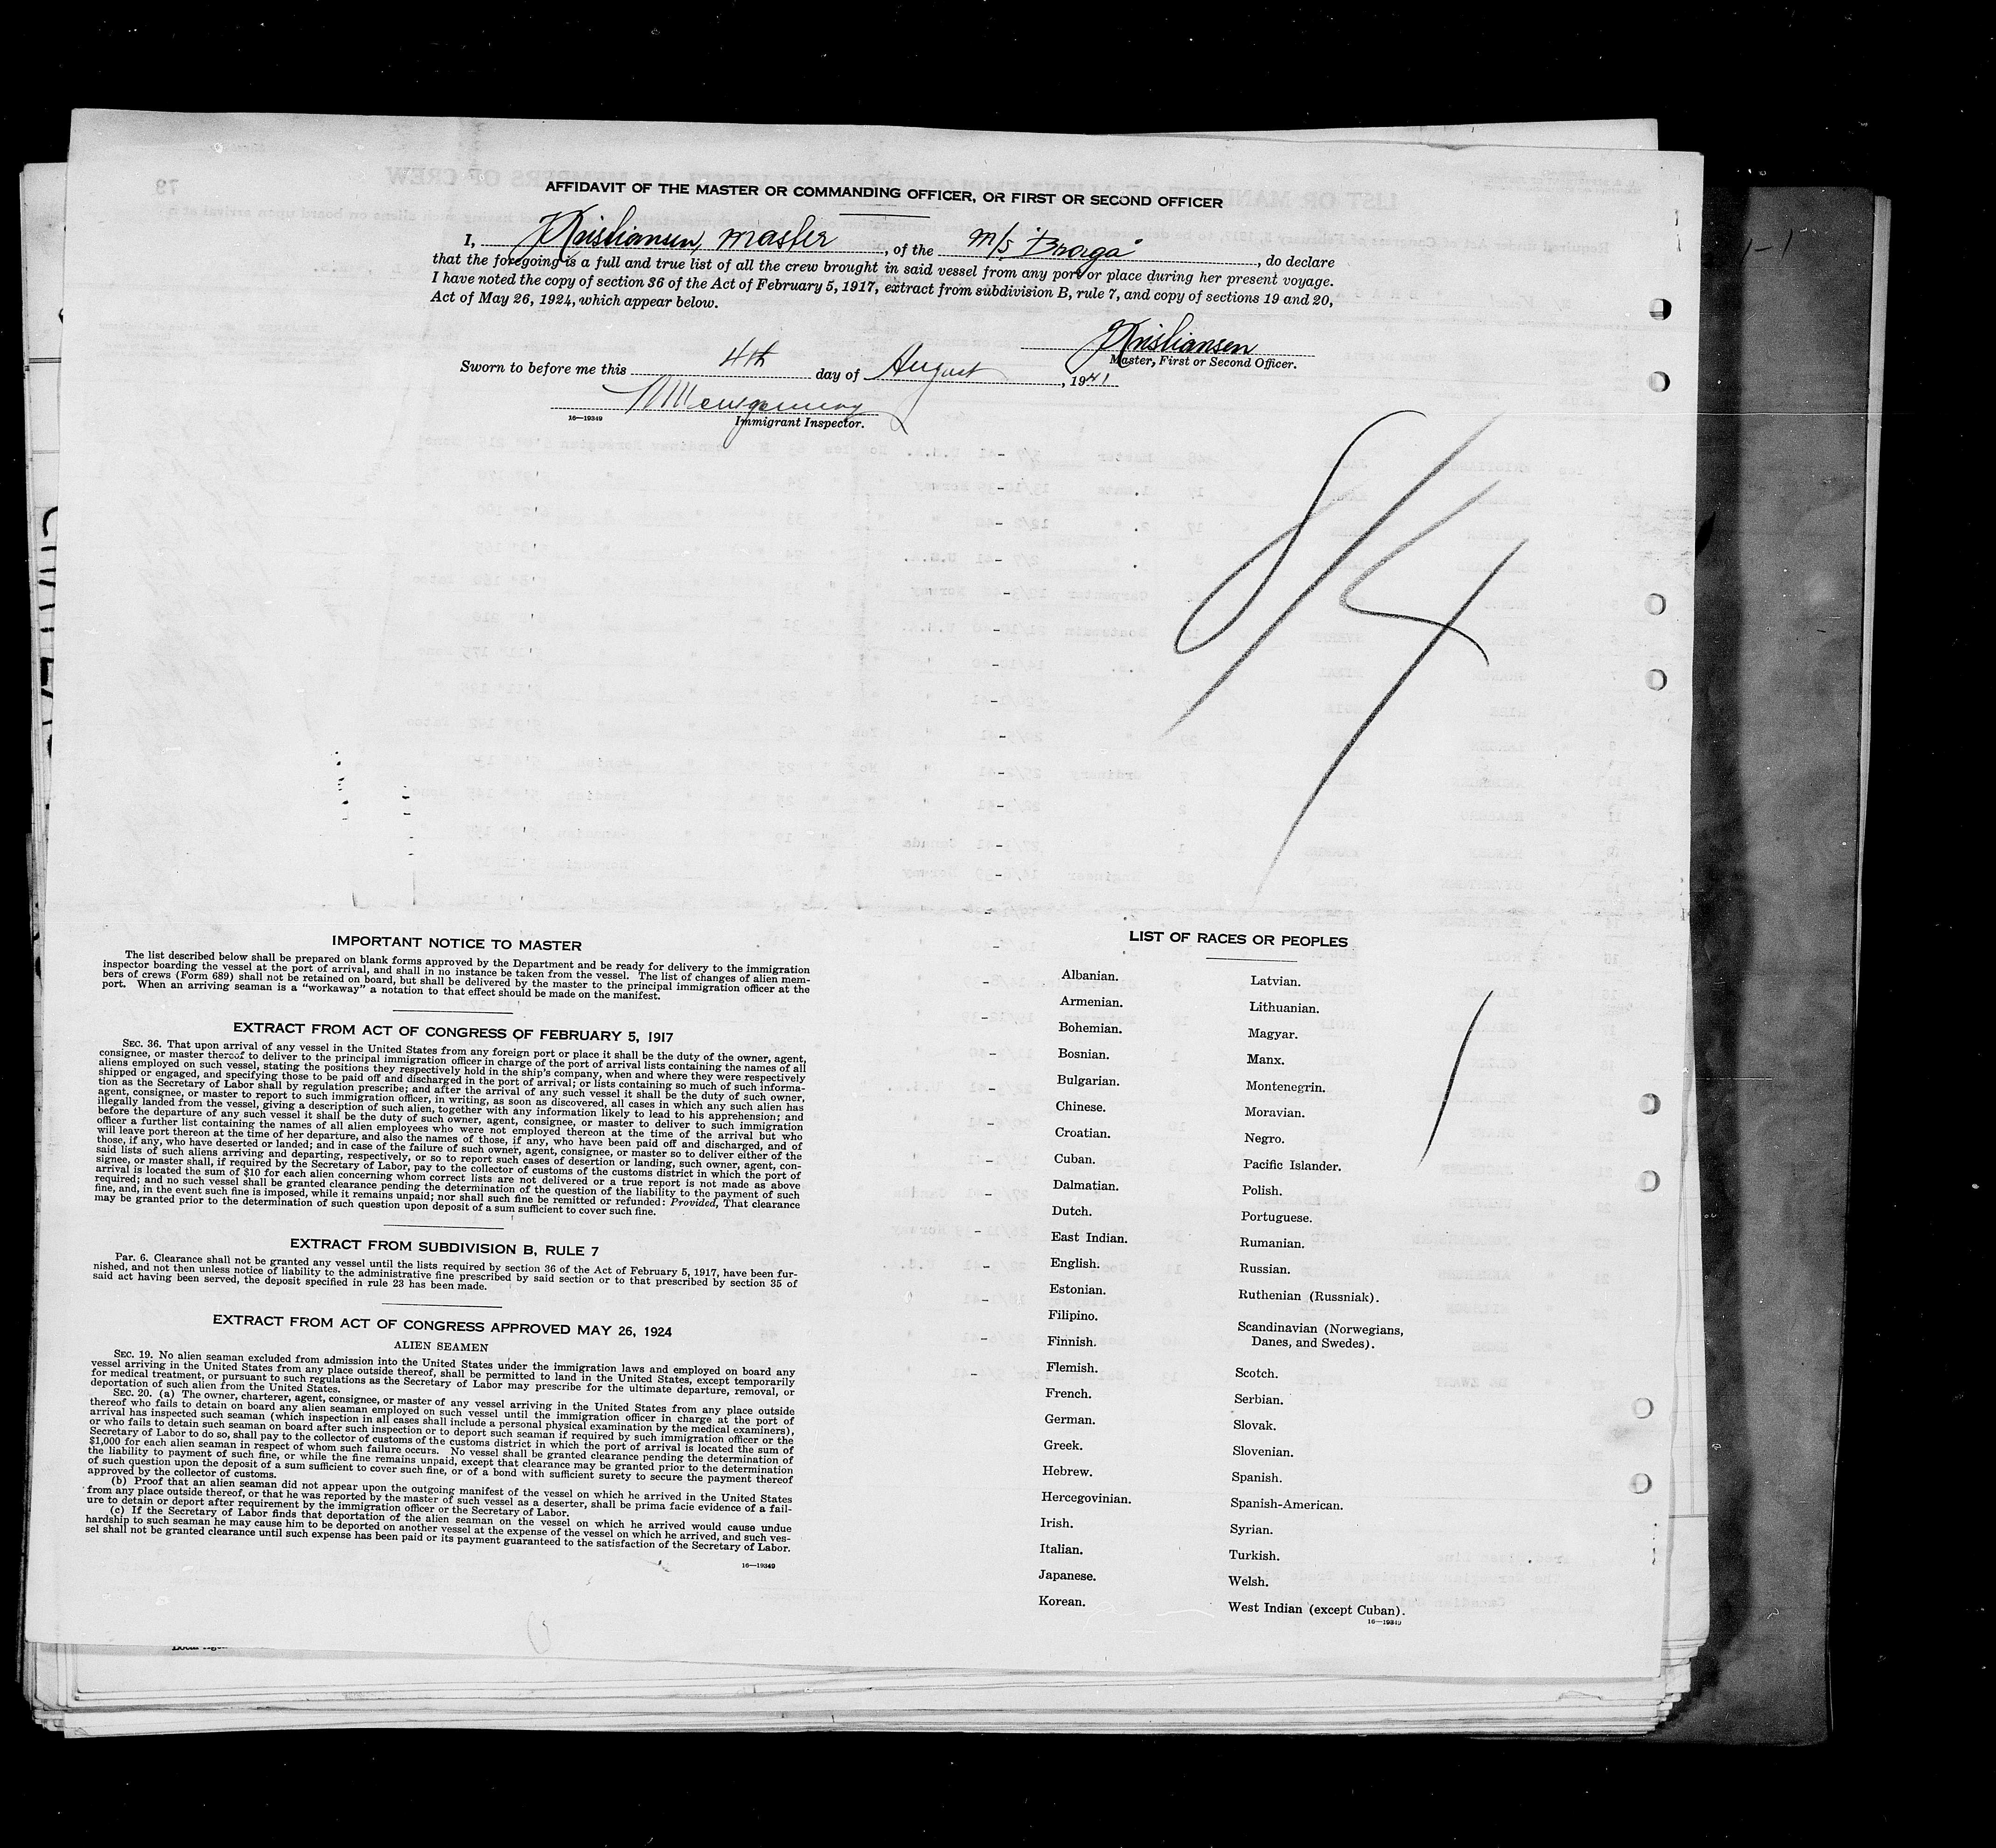 AFFIDAVIT OF THE MASTER OR COMMANDING OFFICER, OR FIRST OR SECOND OFFICER
I, JKristiansen, master, of the M/S "Braga", do declare
that the foregoing is a full and true list of all the crew brought in said vessel from any port or place during her present voyage.
I have noted the copy of section 36 of the Act of February 5, 1917, extract from subdivision B, rule 7, and copy of sections 19 and 20,
Act of May 26, 1924, which appear below.
JKristiansen
Master, First or Second Officer.
Sworn to before me this 4th day of August, 1941
Montgomery
16—19349 Immigrant Inspector.
8/4
IMPORTANT NOTICE TO MASTER
The list described below shall be prepared on blank forms approved by the Department and be ready for delivery to the immigration
inspector boarding the vessel at the port of arrival, and shall in no instance be taken from the vessel. The list of changes of alien mem-
bers of crews (Form 689) shall not be retained on board, but shall be delivered by the master to the principal immigration officer at the
port. When an arriving seaman is a "workaway" a notation to that effect should be made on the manifest.
EXTRACT FROM ACT OF CONGRESS OF FEBRUARY 5, 1917
SEC. 36. That upon arrival of any vessel in the United States from any foreign port or place it shall be the duty of the owner, agent,
consignee, or master thereof to deliver to the principal immigration officer in charge of the port of arrival lists containing the names of all
aliens employed on such vessel, stating the positions they respectively hold in the ship's company, when and where they were respectively
shipped or engaged, and specifying those to be paid off and discharged in the port of arrival; or lists containing so much of such informa-
tion as the Secretary of Labor shall by regulation prescribe; and after the arrival of any such vessel it shall be the duty of such owner,
agent, consignee, or master to report to such immigration officer, in writing, as soon as discovered, all cases in which any such alien has
illegally landed from the vessel, giving a description of such alien, together with any information likely to lead to his apprehension; and
before the departure of any such vessel it shall be the duty of such owner, agent, consignee, or master to deliver to such immigration
officer a further list containing the names of all alien employees who were not employed thereon at the time of the arrival but who
will leave port thereon at the time of her departure, and also the names of those, if any, who have been paid off and discharged, and of
those, if any, who have deserted or landed; and in case of the failure of such owner, agent, consignee, or master so to deliver either of the
said lists of such aliens arriving and departing, respectively, or so to report such cases of desertion or landing, such owner, agent, con-
signee, or master shall, if required by the Secretary of Labor, pay to the collector of customs of the customs district in which the port of
arrival is located the sum of $10 for each alien concerning whom correct lists are not delivered or a true report is not made as above
required; and no such vessel shall be granted clearance pending the determination of the question of the liability to the payment of such
fine, and, in the event such fine is imposed, while it remains unpaid; nor shall such fine be remitted or refunded: Provided, That clearance
may be granted prior to the determination of such question upon deposit of a sum sufficient to cover such fine.
EXTRACT FROM SUBDIVISION B, RULE 7
Par. 6. Clearance shall not be granted any vessel until the lists required by section 36 of the Act of February 5, 1917, have been fur-
nished, and not then unless notice of liability to the administrative fine prescribed by said section or to that prescribed by section 35 of
said act having been served, the deposit specified in rule 23 has been made.
EXTRACT FROM ACT OF CONGRESS APPROVED MAY 26, 1924
ALIEN SEAMEN
SEC. 19. No alien seaman excluded from admission into the United States under the immigration laws and employed on board any
vessel arriving in the United States from any place outside thereof, shall be permitted to land in the United States, except temporarily
for medical treatment, or pursuant to such regulations as the Secretary of Labor may prescribe for the ultimate departure, removal, or
deportation of such alien from the United States.
SEC. 20. (a) The owner, charterer, agent, consignee, or master of any vessel arriving in the United States from any place outside
thereof who fails to detain on board any alien seaman employed on such vessel until the immigration officer in charge at the port of
arrival has inspected such seaman (which inspection in all cases shall include a personal physical examination by the medical examiners),
or who fails to detain such seaman on board after such inspection or to deport such seaman if required by such immigration officer or the
Secretary of Labor to do so, shall pay to the collector of customs of the customs district in which the port of arrival is located the sum of
$1,000 for each alien seaman in respect of whom such failure occurs. No vessel shall be granted clearance pending the determination of
the liability to payment of such fine, or while the fine remains unpaid, except that clearance may be granted prior to the determination
of such question upon the deposit of a sum sufficient to cover such fine, or of a bond with sufficient surety to secure the payment thereof
approved by the collector of customs.
(b) Proof that an alien seaman did not appear upon the outgoing manifest of the vessel on which he arrived in the United States
from any place outside thereof, or that he was reported by the master of such vessel as a deserter, shall be prima facie evidence of a fail-
ure to detain or deport after requirement by the immigration officer or the Secretary of Labor.
(c) If the Secretary of Labor finds that deportation of the alien seaman on the vessel on which he arrived would cause undue
hardship to such seaman he may cause him to be deported on another vessel at the expense of the vessel on which he arrived, and such ves-
sel shall not be granted clearance until such expense has been paid or its payment guaranteed to the satisfaction of the Secretary of Labor.
16—19349
LIST OF RACES OR PEOPLES
Albanian.
Armenian.
Bohemian.
Bosnian.
Bulgarian.
Chinese.
Croatian.
Cuban.
Dalmatian.
Dutch.
East Indian.
English.
Estonian.
Filipino.
Finnish.
Flemish.
French.
German.
Greek.
Hebrew.
Hercegovinian.
Irish.
Italian.
Japanese.
Korean.
Latvian.
Lithuanian.
Magyar.
Manx.
Montenegrin.
Moravian.
Negro.
Pacific Islander.
Polish.
Portuguese.
Rumanian.
Russian.
Ruthenian (Russniak).
Scandinavian (Norwegians,
Danes, and Swedes).
Scotch.
Serbian.
Slovak.
Slovenian.
Spanish.
Spanish-American.
Syrian.
Turkish.
Welsh.
West Indian (except Cuban).
16—19349